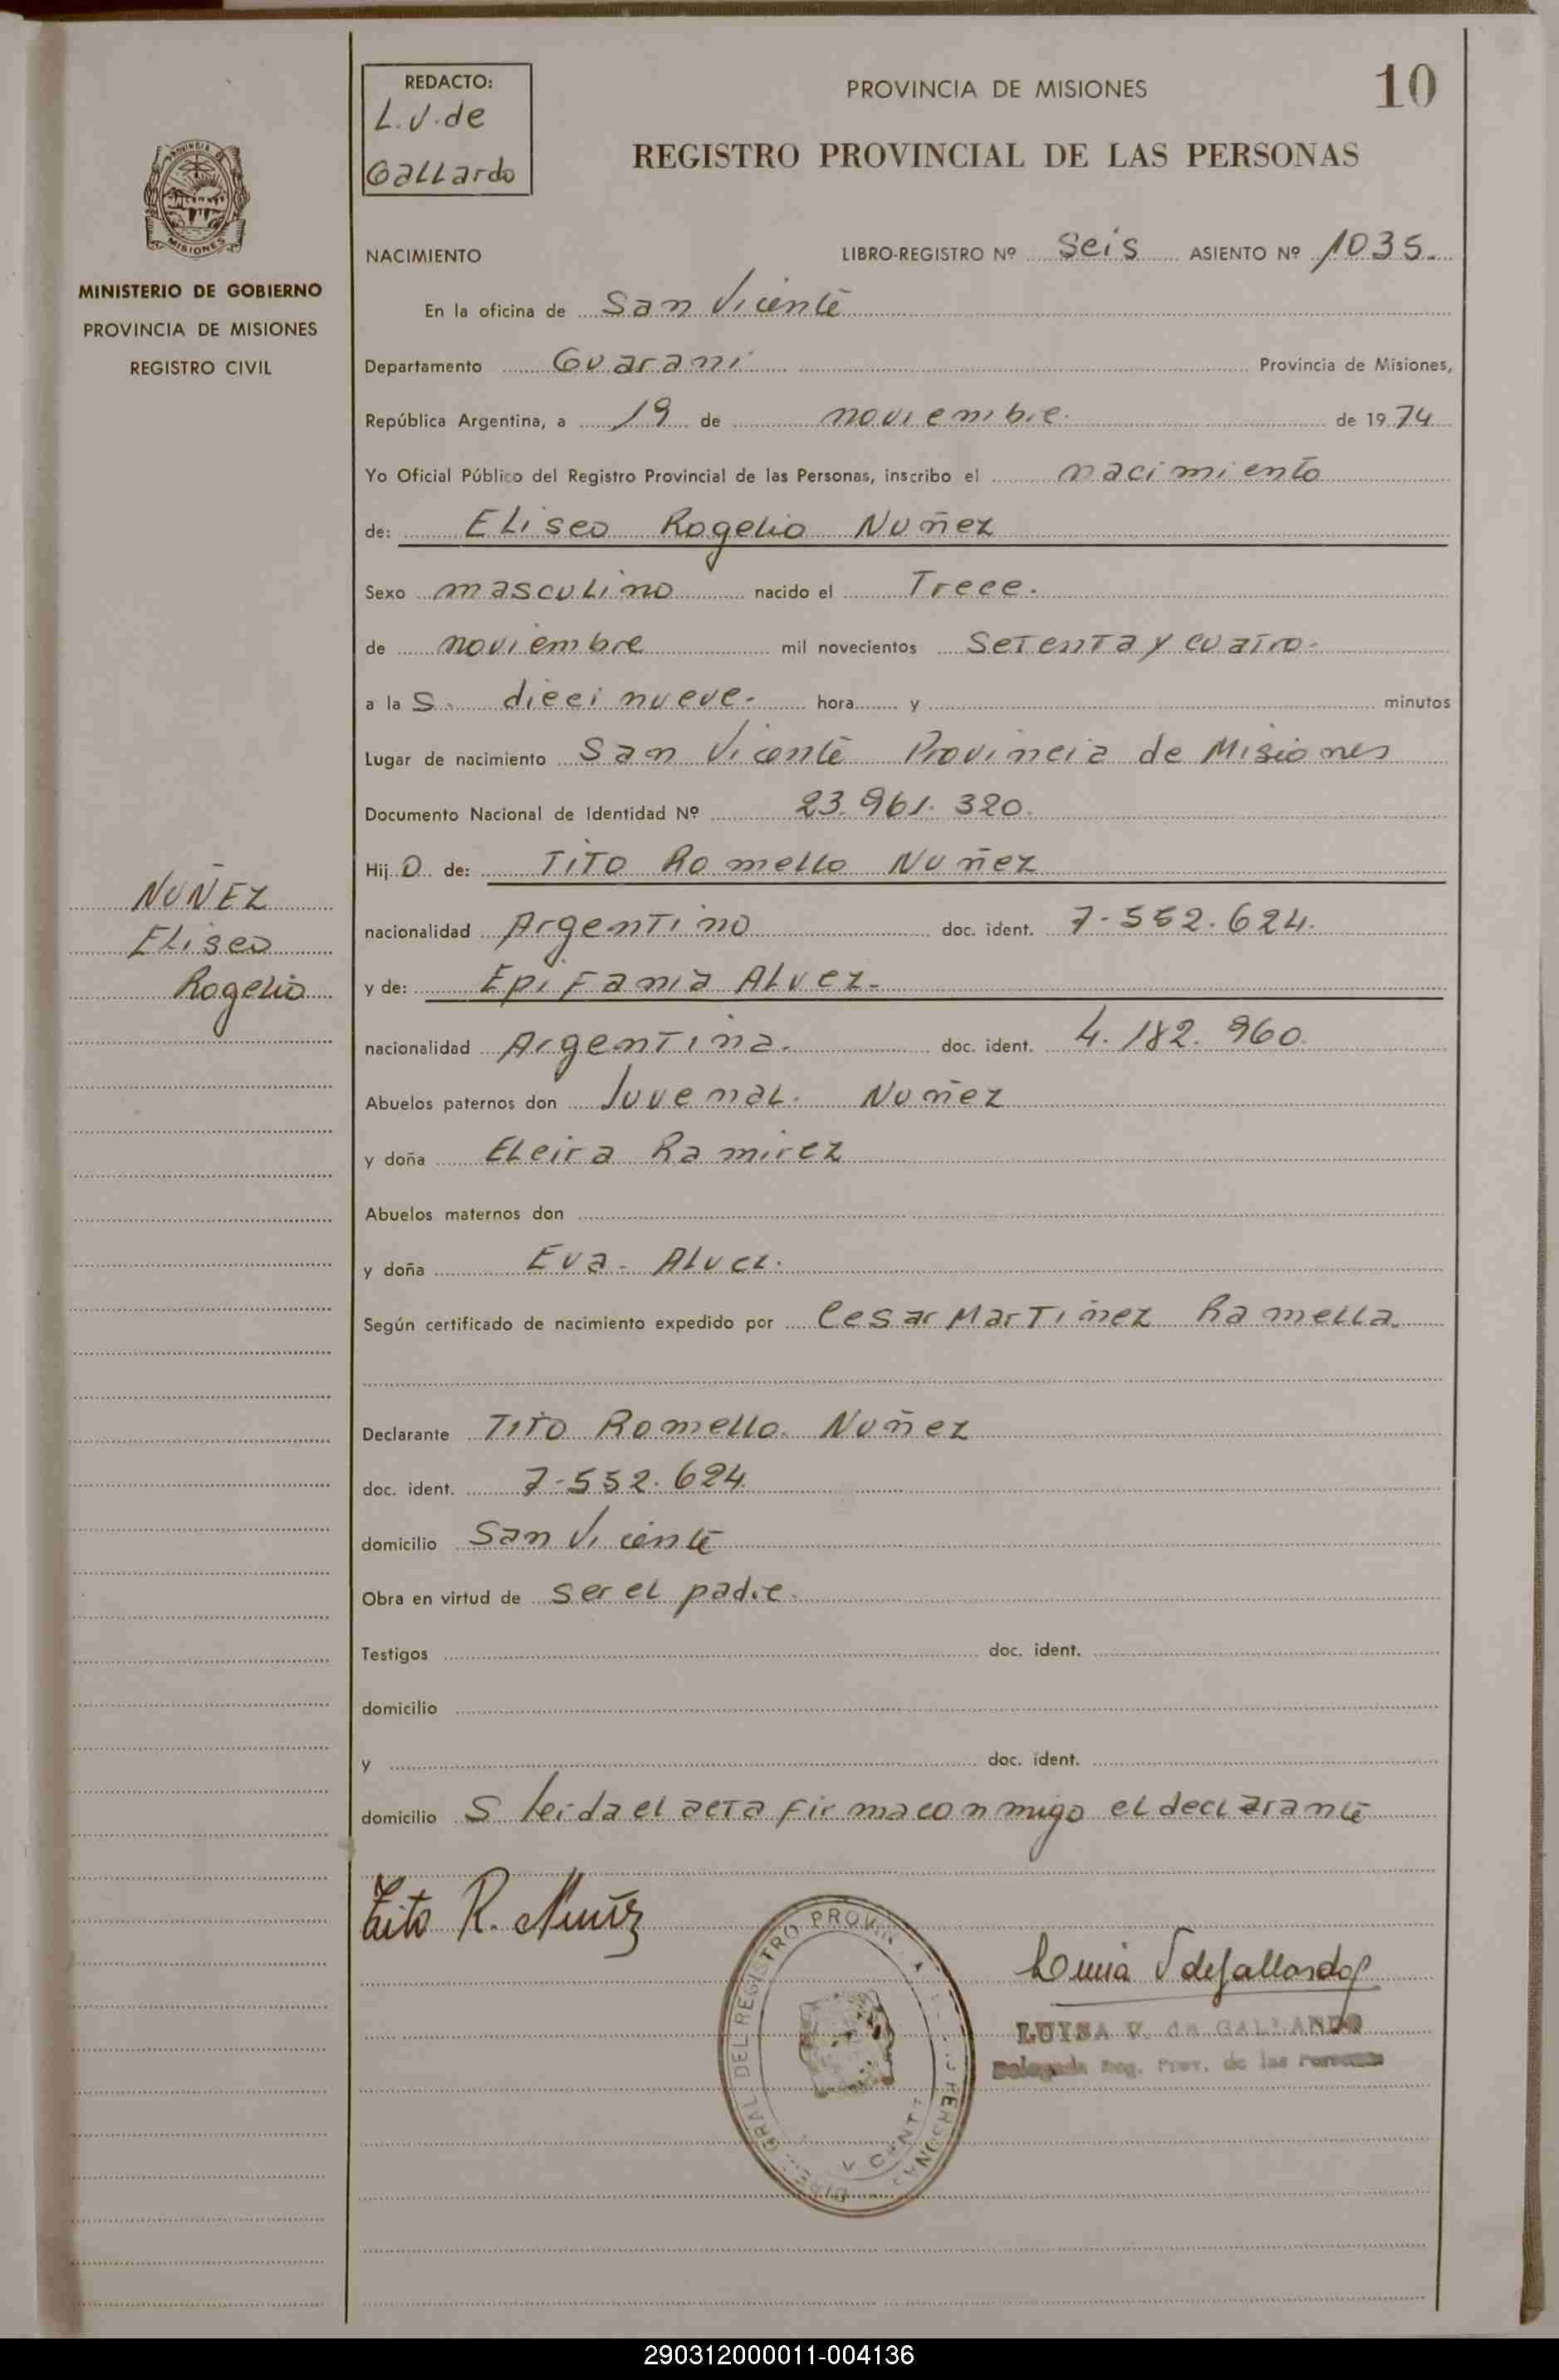 REDACTO:
L.V. de
Gallardo
PROVINCIA DE MISIONES
10
REGISTRO PROVINCIAL DE LAS PERSONAS
MISIONES
MINISTERIO DE GOBIERNO
PROVINCIA DE MISIONES
REGISTRO CIVIL
NACIMIENTO LIBRO-REGISTRO Nº Seis ASIENTO Nº 1035.
En la oficina de San Vicente
Departamento Guarani Provincia de Misiones,
República Argentina, a 19 de noviembre. de 1974
Yo Oficial Público del Registro Provincial de las Personas, inscribo el nacimiento
de: Eliseo Rogelio Nuñez
Sexo masculino nacido el Trece.
de noviembre mil novecientos setenta y cuatro.
a la s. diecinueve. hora y minutos
Lugar de nacimiento San Vicente Provincia de Misiones
Documento Nacional de Identidad Nº 23.961.320.
Hij o de: Tito Romello Nuñez
nacionalidad Argentino doc. ident. 7.552.624.
y de: Epifania Alvez.
nacionalidad Argentina. doc. ident. 4.182.960.
Abuelos paternos don Juvenal. Nuñez
y doña Elcira Ramirez
Abuelos maternos don
y doña Eva. Alvez.
Según certificado de nacimiento expedido por Cesar Martinez Ramella.
Declarante Tito Romello. Nuñez
doc. ident. 7.552.624.
domicilio San Vicente
Obra en virtud de ser el padre.
Testigos doc. ident.
domicilio
y doc. ident.
domicilio S leida el acta firma conmigo el declarante
NUÑEZ
Eliseo
Rogelio
Tito R. Nuñez
LUISA V. de GALLARDO
Delegada Reg. Prov. de las Personas
290312000011-004136